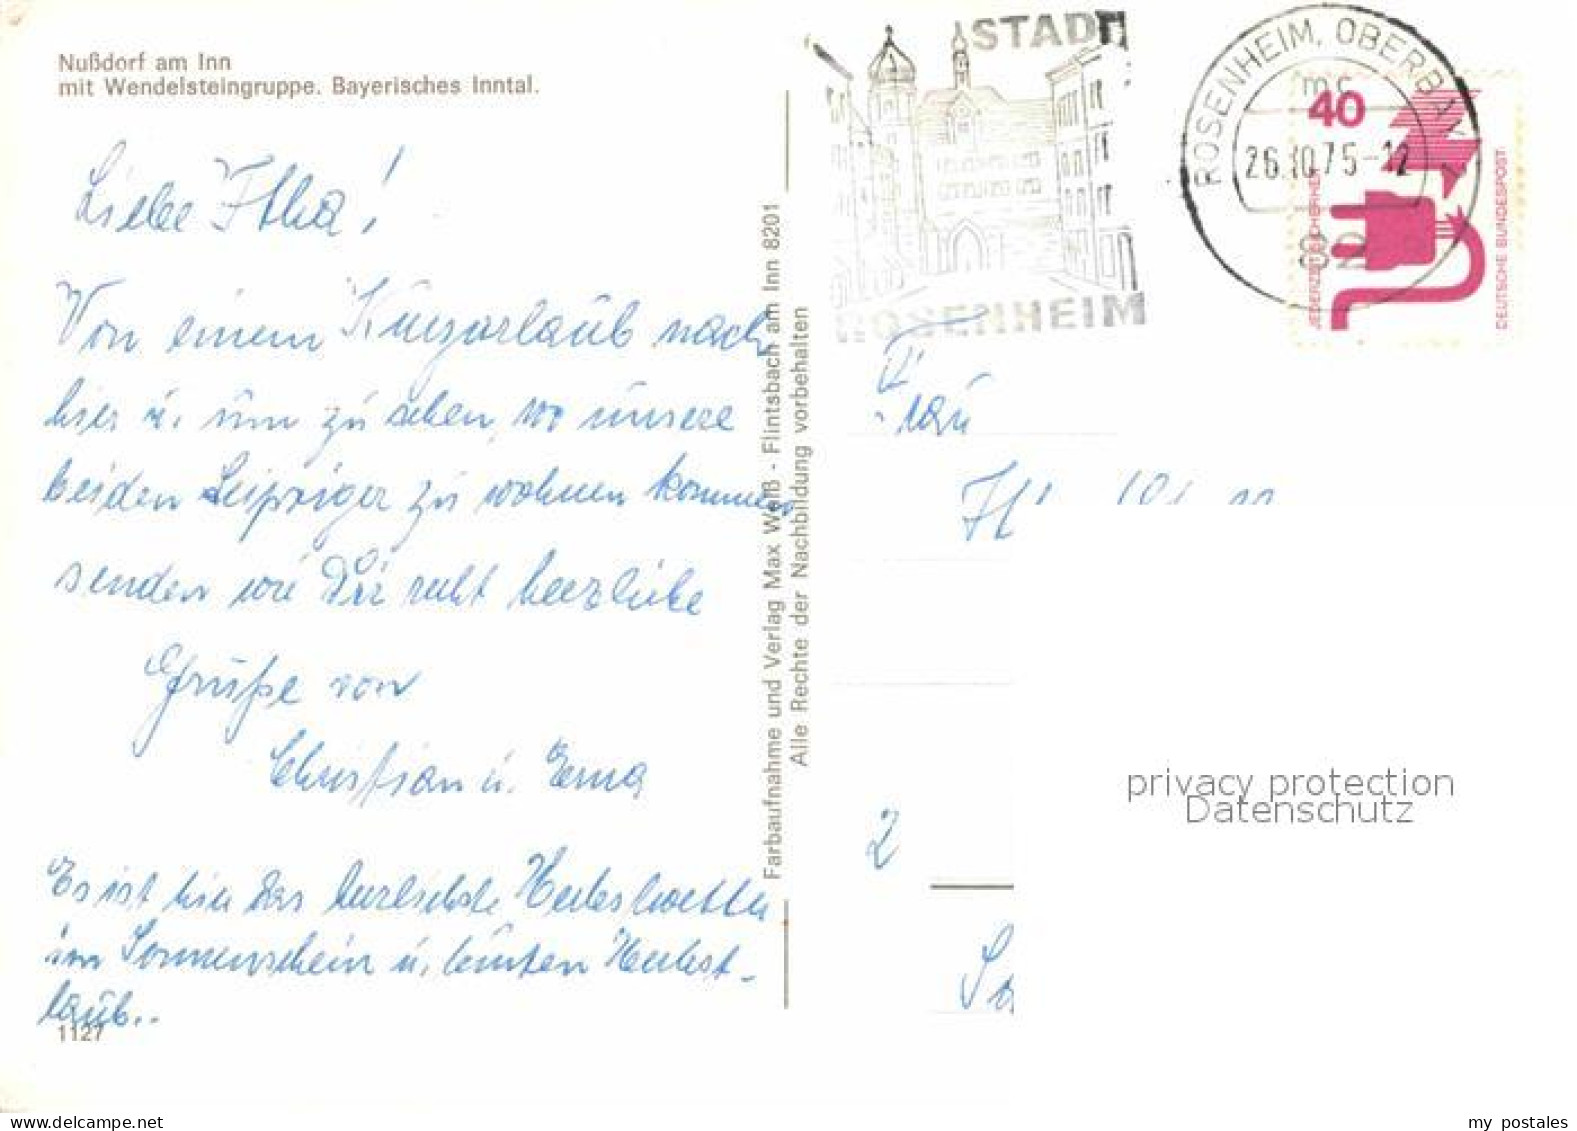 Nußdorf am Inn
mit Wendelsteingruppe. Bayerisches Inntal.
Liebe Ilka!
Von einem Kurzurlaub nach
hier u. um zu sehen, wo unsere
beiden Leipziger zu wohnen kommen
senden wir Dir recht herzliche
Grüße von
Christian u. Erna
Es ist hier das herrlichste Herbstwetter
im Sonnenschein u. bunten Herbst-
laub..
1127
Farbaufnahme und Verlag Max Weiß - Flintsbach am Inn 8201
Alle Rechte der Nachbildung vorbehalten
STADT
ROSENHEIM
ROSENHEIM, OBERBAY
mc
26.10.75-12
82
40
JEDERZEIT SICHERHEIT
DEUTSCHE BUNDESPOST
Frau
2
privacy protection
Datenschutz
my postales